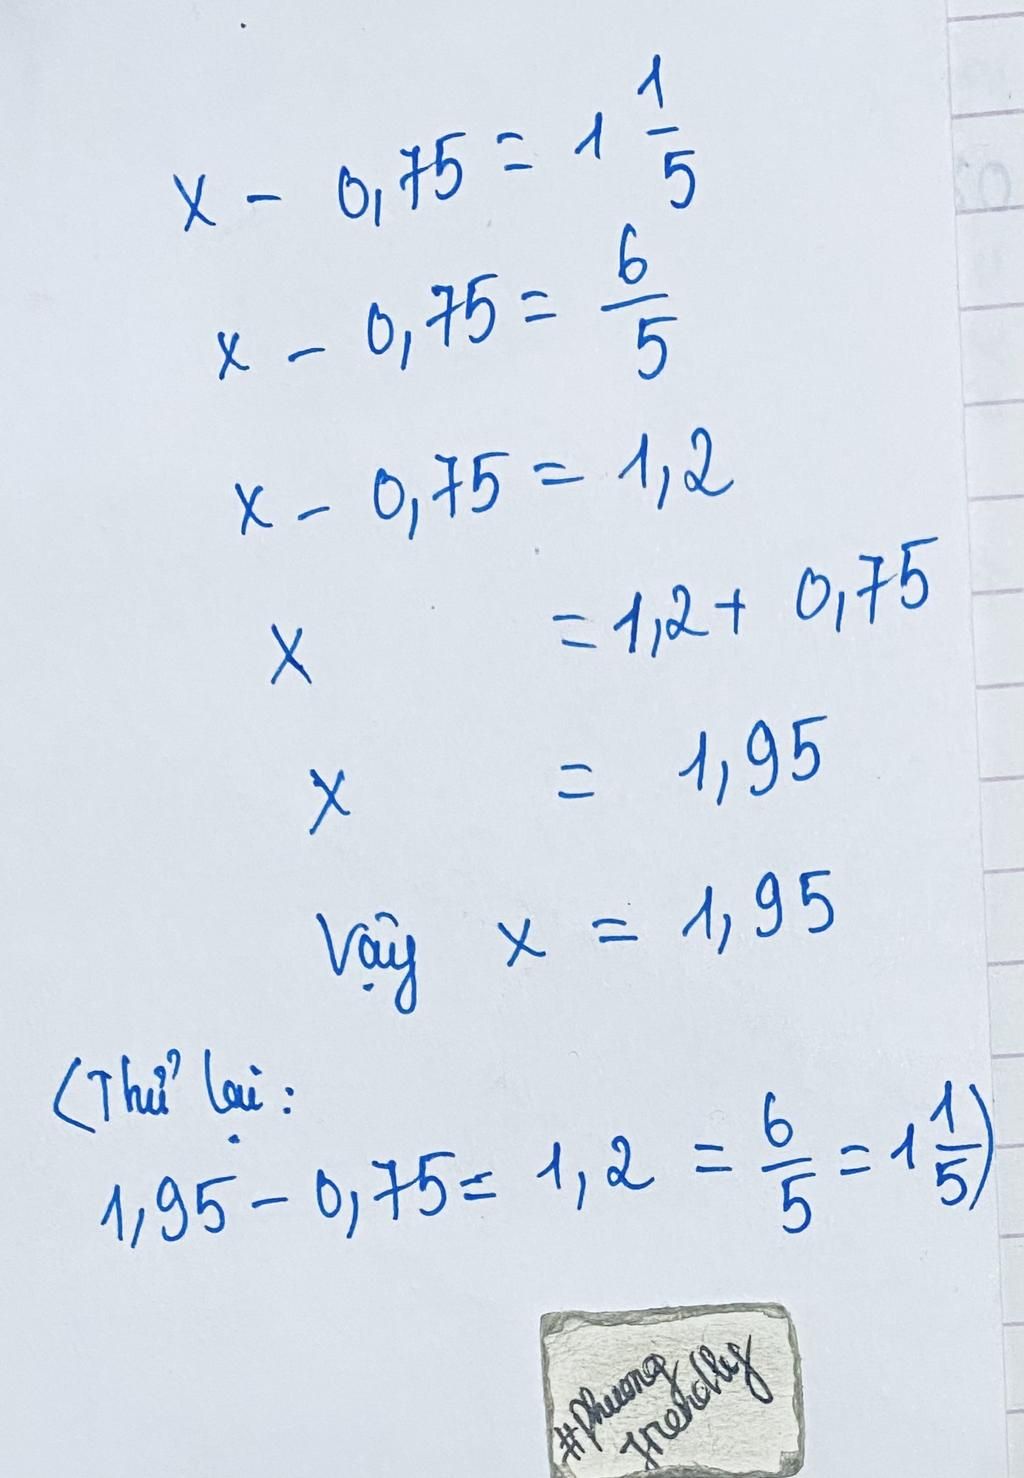 x - 0,75 = 1 1/5
x - 0,75 = 6/5
x - 0,75 = 1,2
x = 1,2 + 0,75
x = 1,95
Vậy x = 1,95
(Thử lại:
1,95 - 0,75 = 1,2 = 6/5 = 1 1/5)
#Phuong
friendly